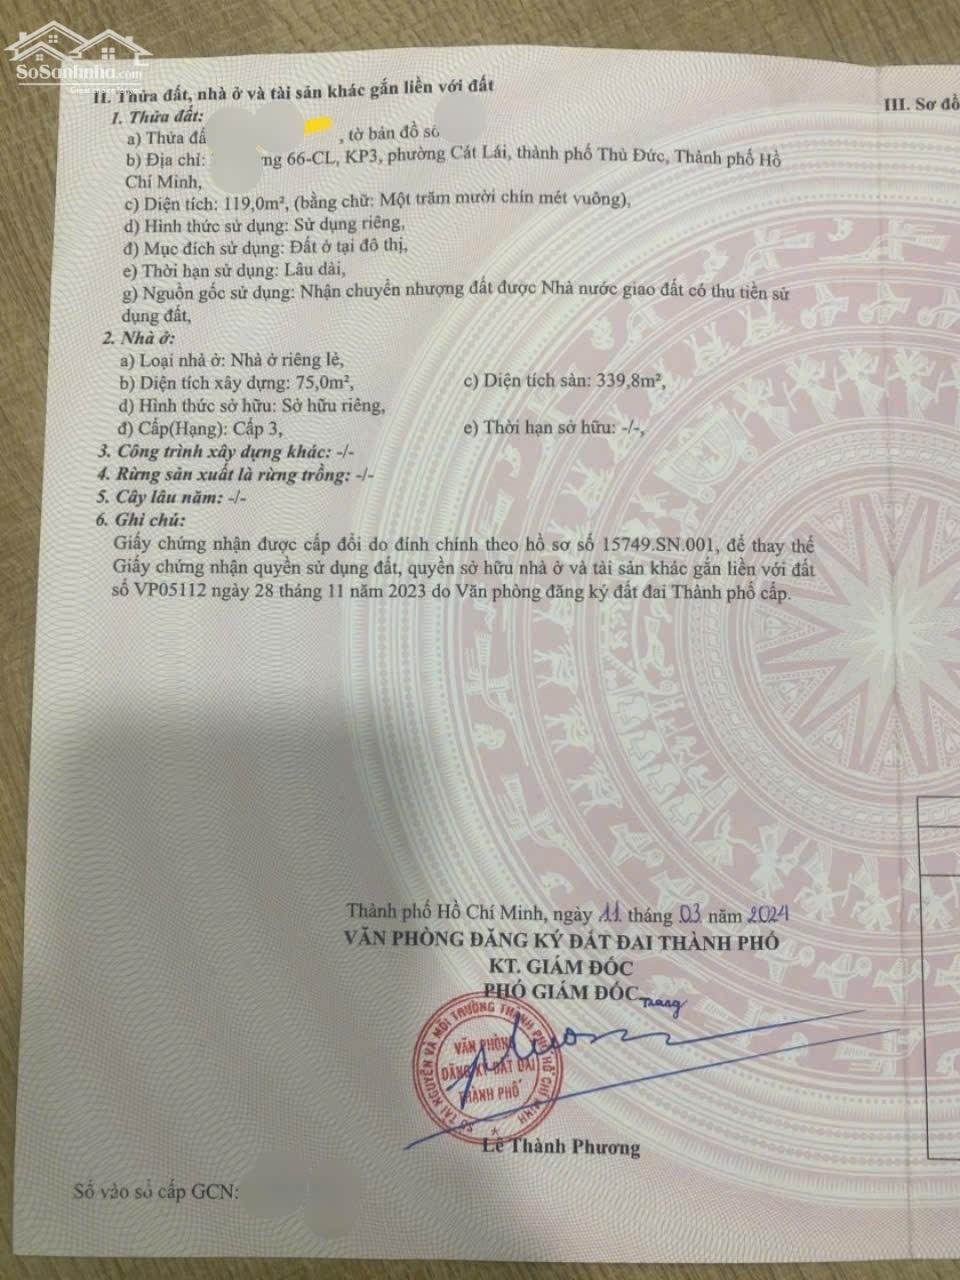 SoSanhnha.com
II. Thửa đất, nhà ở và tài sản khác gắn liền với đất
III. Sơ đồ
1. Thửa đất:
a) Thửa đấ , tờ bản đồ số
b) Địa chỉ: ng 66-CL, KP3, phường Cát Lái, thành phố Thủ Đức, Thành phố Hồ
Chí Minh,
c) Diện tích: 119,0m², (bằng chữ: Một trăm mười chín mét vuông),
d) Hình thức sử dụng: Sử dụng riêng,
đ) Mục đích sử dụng: Đất ở tại đô thị,
e) Thời hạn sử dụng: Lâu dài,
g) Nguồn gốc sử dụng: Nhận chuyển nhượng đất được Nhà nước giao đất có thu tiền sử
dụng đất,
2. Nhà ở:
a) Loại nhà ở: Nhà ở riêng lẻ,
b) Diện tích xây dựng: 75,0m², c) Diện tích sàn: 339,8m²,
d) Hình thức sở hữu: Sở hữu riêng,
đ) Cấp(Hạng): Cấp 3, e) Thời hạn sở hữu: -/-,
3. Công trình xây dựng khác: -/-
4. Rừng sản xuất là rừng trồng: -/-
5. Cây lâu năm: -/-
6. Ghi chú:
Giấy chứng nhận được cấp đổi do đính chính theo hồ sơ số 15749.SN.001, để thay thế
Giấy chứng nhận quyền sử dụng đất, quyền sở hữu nhà ở và tài sản khác gắn liền với đất
số VP05112 ngày 28 tháng 11 năm 2023 do Văn phòng đăng ký đất đai Thành phố cấp.
Thành phố Hồ Chí Minh, ngày 11 tháng 03 năm 2024
VĂN PHÒNG ĐĂNG KÝ ĐẤT ĐAI THÀNH PHỐ
KT. GIÁM ĐỐC
PHÓ GIÁM ĐỐC
Trang
SỞ TÀI NGUYÊN VÀ MÔI TRƯỜNG THÀNH PHỐ HỒ CHÍ MINH
VĂN PHÒNG
ĐĂNG KÝ ĐẤT ĐAI
THÀNH PHỐ
Lê Thành Phương
Số vào sổ cấp GCN: